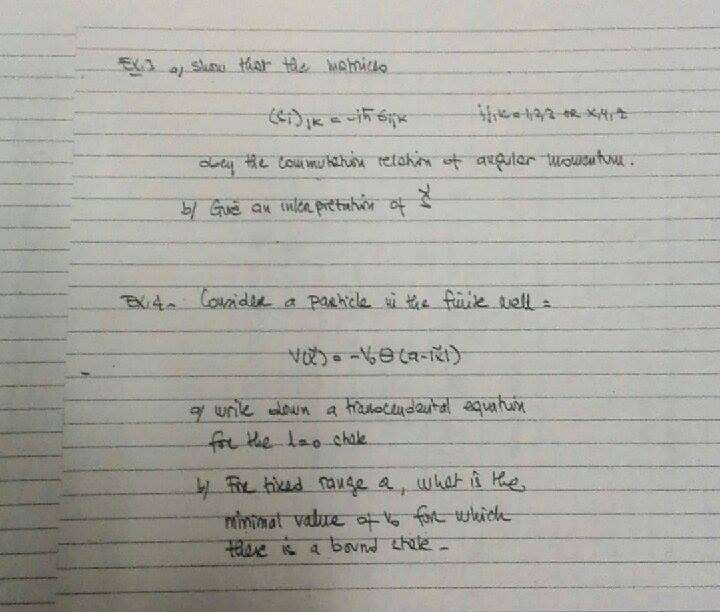 Ex.3 a) show that the matrices
(Si)jk = -iħ εijk    i,j,k = 1,2,3 or x,y,z
obey the commutation relation of angular momentum.
b) Give an interpretation of S⃗
Ex.4- Consider a particle in the finite well =
V(x⃗) = -V₀ θ(a-|x⃗|)
a) write down a transcendental equation
for the l=0 state
b) For fixed range a, what is the
minimal value of V₀ for which
there is a bound state -